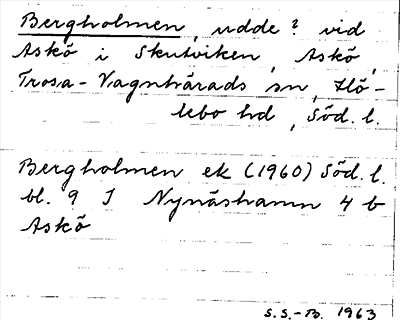 Bergholmen, udde? vid
Askö i Skutviken, Askö,
Trosa-Vagnhärads sn, Hö-
lebo hd, Söd. l.
Bergholmen ek (1960) Söd. l.
bl. 9 I Nynäshamn 4 b
Askö
S.S.-B. 1963